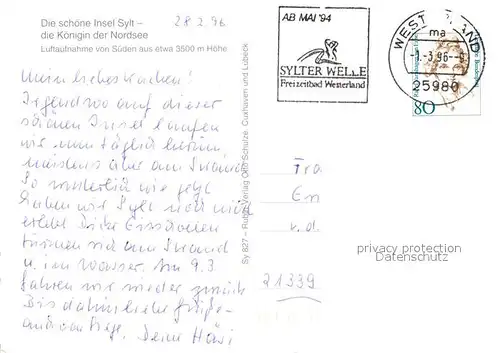 Die schöne Insel Sylt –
die Königin der Nordsee
Luftaufnahme von Süden aus etwa 3500 m Höhe
28.2.96
Mein liebes
Irgendwo auf dieser
schönen Insel laufen
wir nun täglich herum
meistens aber am Strand.
So winterlich wie jetzt
haben wir Sylt noch nicht
erlebt. Dicke Eisschollen
türmen sich am Strand
u. im Wasser. Am 9.3
fahren wir wieder zurück
Bis dahin liebe Grüße
Deine
Sy 827 – Verlag Schulze, Cuxhaven und Lübeck
AB MAI '94
SYLTER WELLE
Freizeitbad Westerland
WESTERLAND
ma
-1.-3.96--9
25980
80
Fra
En
v.d.
21339
privacy protection
Datenschutz